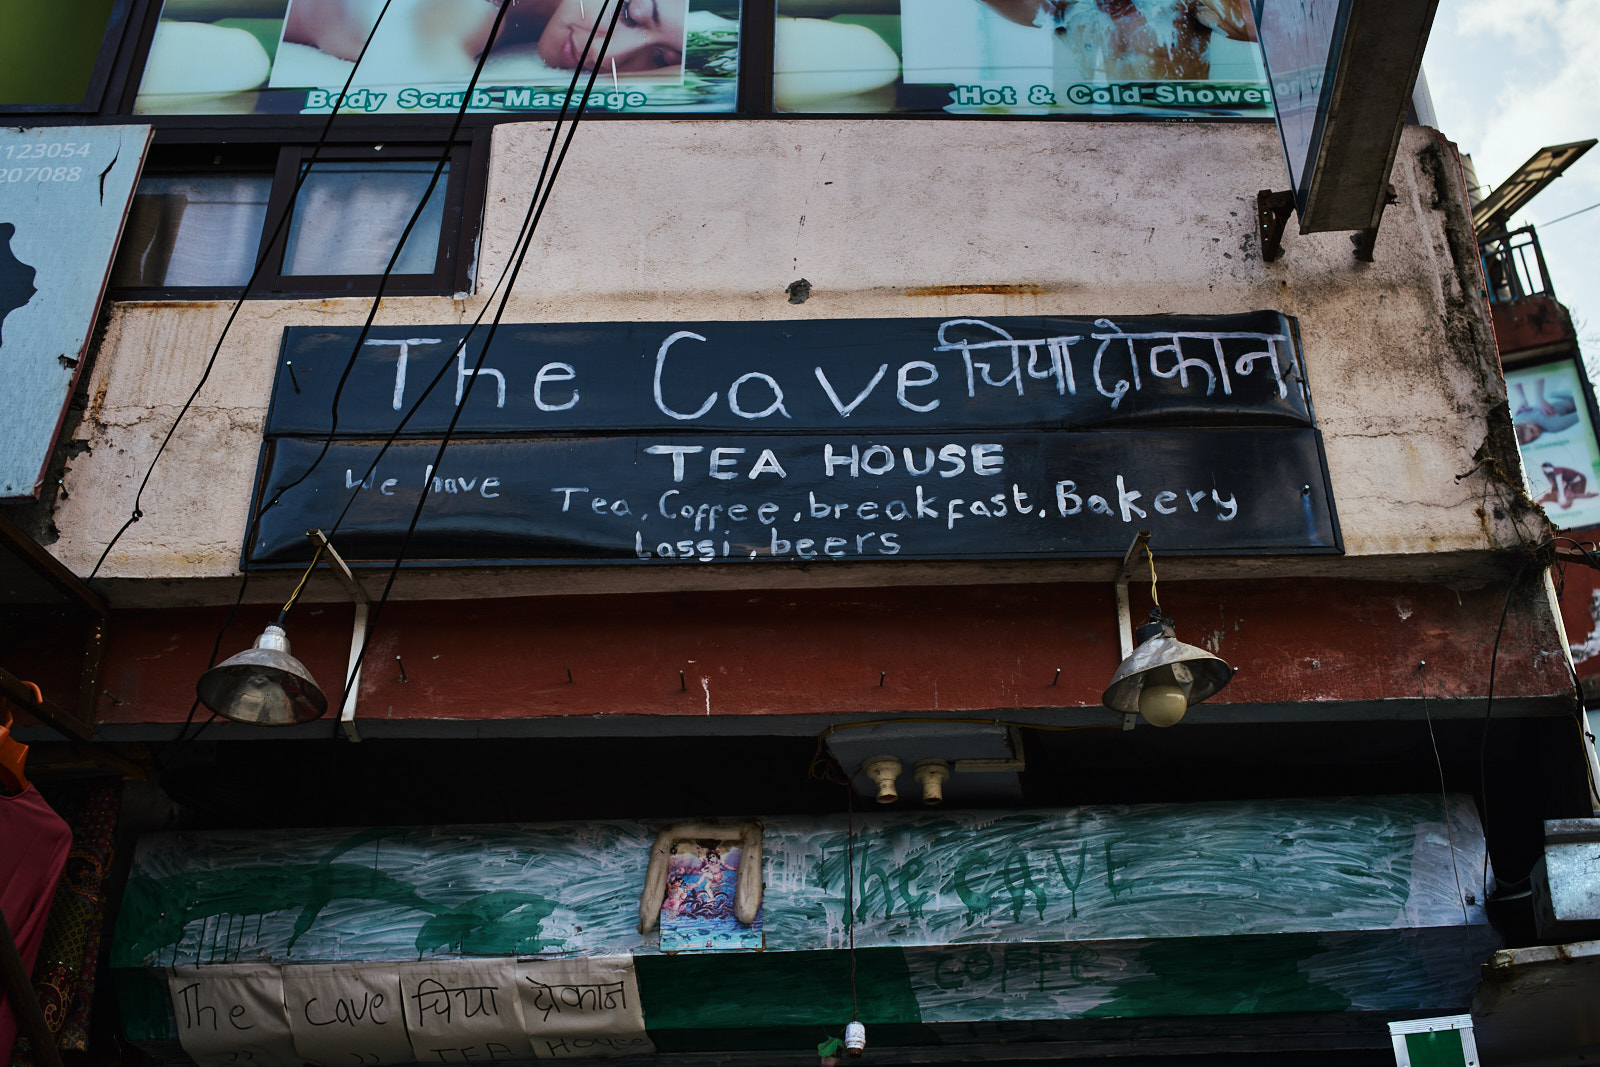 Body Scrub Massage
Hot & Cold Shower
123054
207088
The Cave चिया दोकान
TEA HOUSE
We have
Tea, Coffee, breakfast, Bakery
Lassi, beers
The CAVE
COFFE
The cave चिया दोकान
,, ,, TEA House